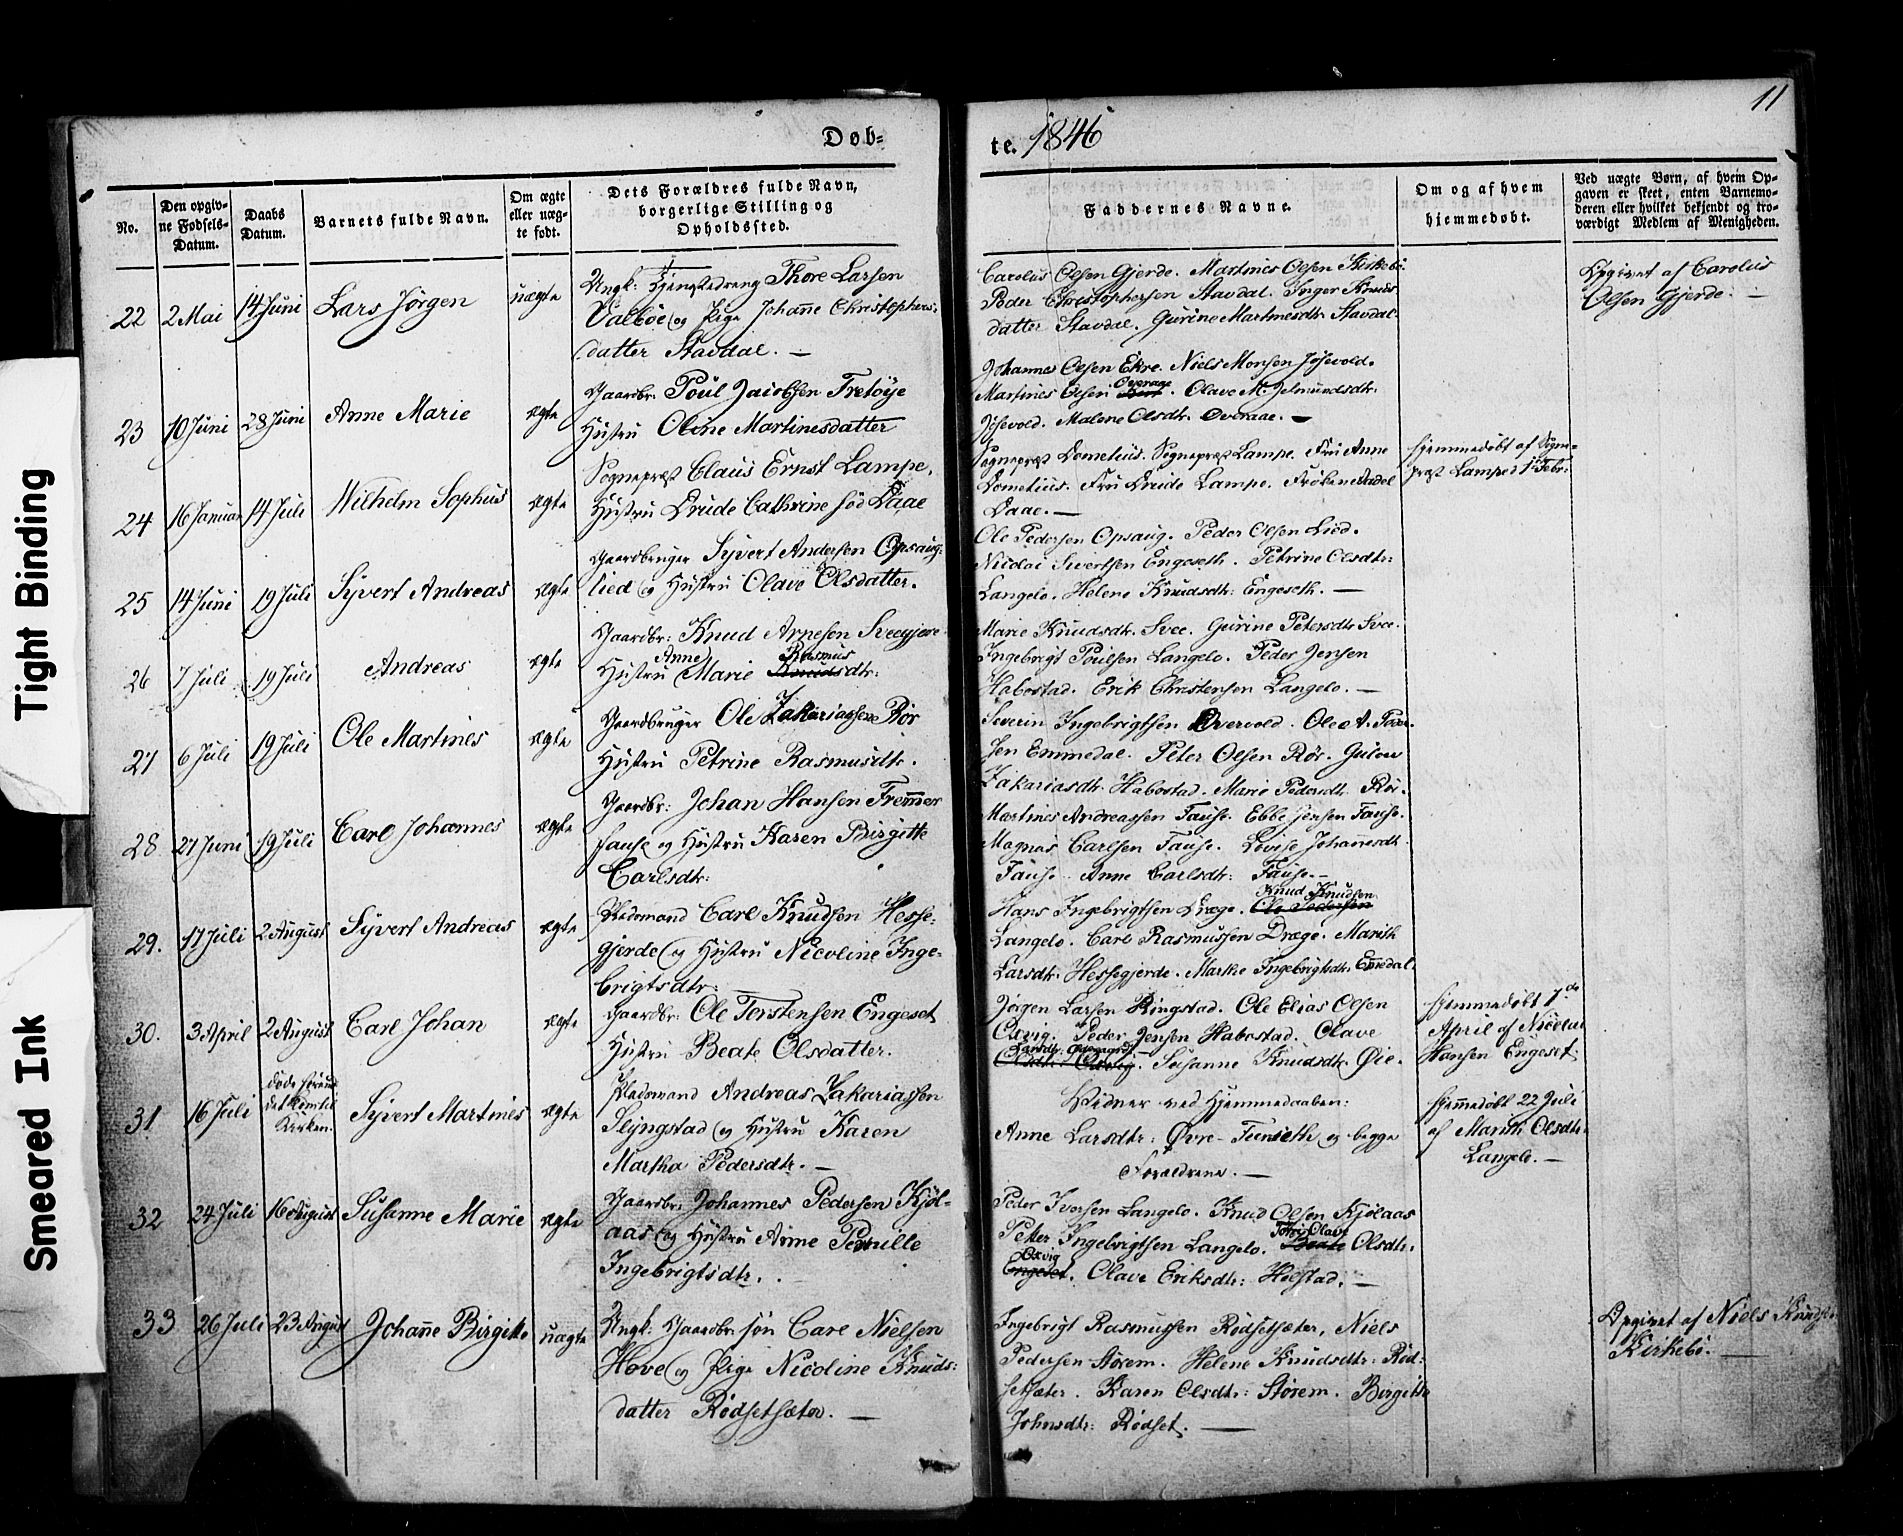 11
Døb-
te. 1846
No.
Den opgiv-
ne Fødsels-
Datum.
Daabs
Datum.
Barnets fulde Navn.
Om ægte
eller uæg-
te født.
Dets Forældres fulde Navn,
borgerlige Stilling og
Opholdssted.
Faddernes Navne.
Om og af hvem
hjemmedøbt.
Ved uægte Børn, af hvem Op-
gaven er skeet, enten Barnemo-
deren eller hvilket bekjendt og tro-
værdigt Medlem af Menigheden.
22 2 Mai 14 Juni Lars Jørgen uægte
Ungk: Tjenstedreng Thore Larsen
Valbøe og Pige Johanne Christophers-
datter Stavdal. —
Carolus Olsen Gjerde. Martines Olsen Kirkebø.
Peder Christophersen Stavdal. Inger Knuds
datter Stavdal. Gurine Martinesdtr Stavdal
Opgivet af Carolus
Olsen Gjerde. —
23 10 Juni 28 Juni Anne Marie ægte
Gaardbr. Poul Jacobsen Fretøye
Hustru Oline Martinesdatter
Johannes Olsen Ekre. Niels Monsen Jøsevold.
Martines Olsen Overaae. Olave M. Jelmundsdtr.
Jøsevold. Malene Olsdtr. Overaae. —
24 16 Januar 14 Juli Wilhelm Sophus ægte
Sognepræst Claus Ernst Lampe,
Hustru Drude Cathrine fød Daae
Sognepræst Lometius. Sognepræst Lampe. Fru Anne
Lometius. Fru Drude Lampe. Frøken Aadel
Daae. —
Hjemmedøbt af Sogne-
præst Lampe d 1ste Febr:
25 14 Juni 19 Juli Syvert Andreas ægte
Gaardbruger Syvert Andersen Opsaug-
lied og Hustru Olave Olsdatter.
Ole Pedersen Opsaug. Peder Olsen Lied.
Nicolai Sivertsen Engeseth. Petrine Olsdtr:
Langelo. Helene Knudsdtr: Engeseth. —
26 7 Juli 19 Juli Andreas ægte
Gaardbr: Knud Arnesen Sveegjere
Hustru Anne Marie Rasmusdtr:
Marie Knudsdtr. Svee. Gurine Petersdtr Svee.
Ingebrigt Poulsen Langelo. Peder Jensen
Habostad. Erik Christensen Langelo. —
27 6 Juli 19 Juli Ole Martines ægte
Gaardbruger Ole Zakariassen Rør
Hustru Petrine Rasmusdtr.
Severin Ingebrigtsen Overvold. Ole A. Peder-
sen Emmedal. Peter Olsen Rør. Gulou
Zakariasdtr. Habostad. Marie Pedersdtr. Rør.
28 21 Juni 19 Juli Carl Johannes ægte
Gaardbr: Johan Hansen Fremmer
fause og Hustru Karen Birgitte
Carlsdtr:
Martines Andreassen Fause. Ebbe Jensen Fause.
Magnus Carlsen Fause. Lovise Johannesdtr.
Fause. Anne Carlsdtr: Fause. —
29. 17 Juli 2 August Syvert Andreas ægte
Pladsmand Carl Knudsen Hesse-
gjerde og Hustru Nicoline Inge-
brigtsdtr:
Hans Ingebrigtsen Dræge. Knud Knudsen
Langelo. Carl Rasmussen Dræge. Marith
Larsdtr. Hessegjerde. Marthe Ingebrigtsdtr. Emedal.
30. 3 April 2 August Carl Johan ægte
Gaardbr: Ole Torstensen Engeset
Hustru Beate Olsdatter.
Jørgen Larsen Ringstad. Ole Elias Olsen
Oxvig. Peder Jensen Habostad. Olave
Olsdtr: Oxvig. Susanne Knudsdtr. Øie.
Hjemmedøbt 7de
April af Nicolai
Hansen Engeset.
31 16 Juli døde førend
det kom til
Kirken. Syvert Martines ægte
Pladsmand Andreas Zakariassen
Slyngstad og Hustru Karen
Martha Pedersdtr. —
Vidner ved Hjemmedaaben:
Anne Larsdtr: Øvre-Tennieth og begge
Forældrene. —
Hjemmedøbt 22 Juli
af Marith Olsdtr.
Langelo. —
32 24 Juli 16 August Susanne Marie ægte
Gaardbr. Johannes Pedersen Kjøl-
aas og Hustru Anne Pernille
Ingebrigtsdtr.
Peder Iversen Langelo. Knud Olsen Kjølaas
Petter Ingebrigtsen Langelo. Olave Beate Olsdtr.
Oxvig
Engeset. Olave Eriksdtr: Helstad. —
33 26 Juli 23 August Johanne Birgitte uægte
Ungk: Gaardbr søn Carl Nielsen
Hove og Pige Nicoline Knuds-
datter Rødsetsæter. —
Ingebrigt Rasmussen Rødsetsæter, Niels
Pedersen Størem. Helene Knudsdtr: Rød-
setsæter. Karen Olsdtr: Størem. Birgitte
Johnsdtr: Rødset. —
Opgivet af Niels Knuds
Kirkebø. —
Tight Binding
Smeared Ink